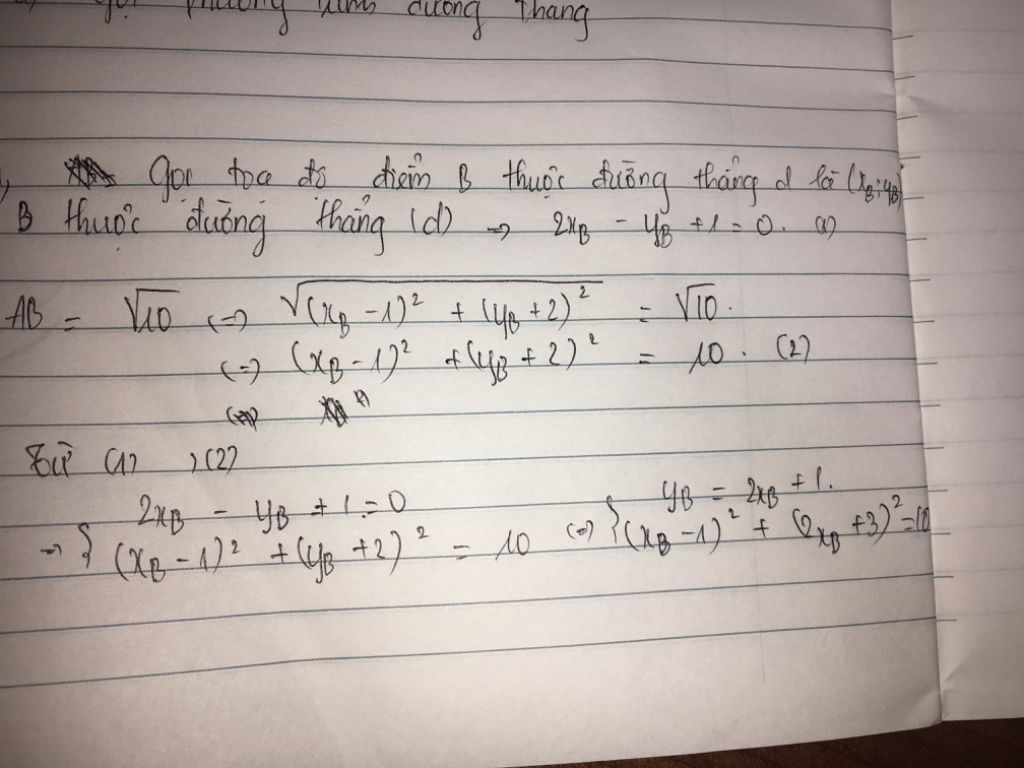 gọi phương trình đường thẳng
Gọi tọa độ điểm B thuộc đường thẳng d là (x_B; y_B)
B thuộc đường thẳng (d) → 2x_B - y_B + 1 = 0. (1)
AB = √10 <=> √((x_B - 1)² + (y_B + 2)²) = √10.
<=> (x_B - 1)² + (y_B + 2)² = 10. (2)
Từ (1), (2)
2x_B - y_B + 1 = 0 y_B = 2x_B + 1.
→ { (x_B - 1)² + (y_B + 2)² = 10 <=> { (x_B - 1)² + (2x_B + 3)² = 10